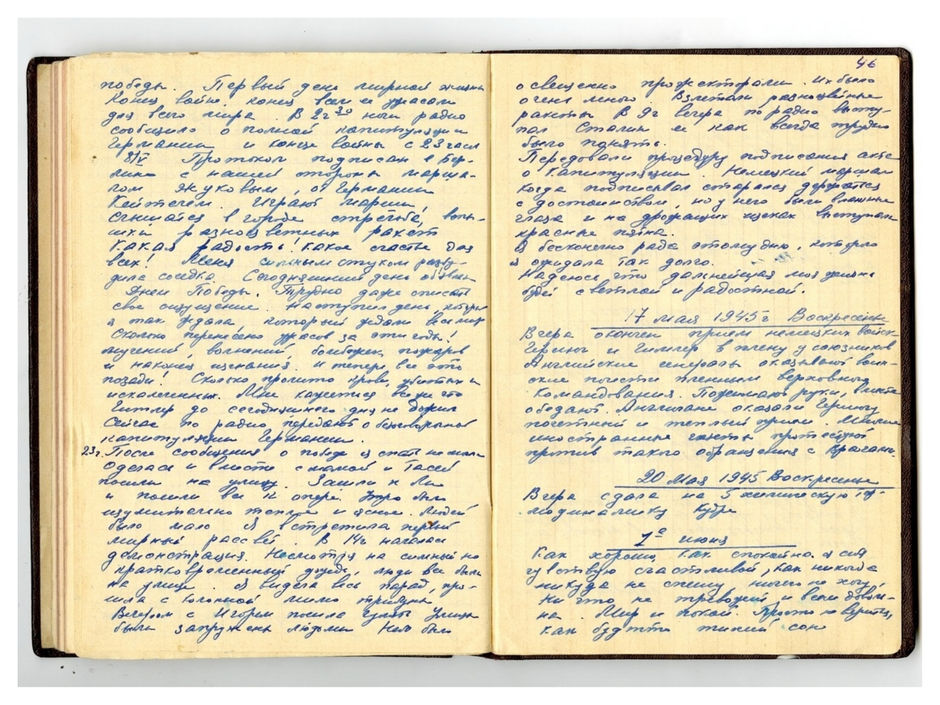 победы. Первый день мирной жизни
Конец войне. Конец всем ужасам
для всего мира. В 2г 30 ночи радио
сообщило о полной капитуляции
Германии и конце войны с 23 часа
8/V Протокол подписан в Бер-
лине с нашей стороны марша-
лом Жуковым, от Германии
Кейтелем. Играют марши,
слышится в городе стрельба, вспы-
шки разноцветных ракет
Какая радость! Какое счастье для
всех! Меня сильным стуком разбу-
дила соседка. Сегодняшний день объявлен
Днем Победы. Трудно даже описать
свое ощущение. Наступил день, который
я так ждала, который ждали весь мир
Сколько перенесено ужасов за эти годы!
мучений, волнений, бомбежек, пожаров
и наконец изгнания. и теперь все это
позади! Сколько пролито крови, убитых и
искалеченных. Мне кажется все же что
Гитлер до сегодняшнего дня не дожил
Сейчас по радио передают о безоговорочной
капитуляции Германии.
23г. После сообщения о победе я спать не могла
Оделась и вместе с мамой и Тасей
пошли на улицу. Зашли к
и пошли все к опере. Утро было
изумительно теплое и ясное. Людей
было мало Я встретила первый
мирный рассвет. В 14г началась
демонстрация. Несмотря на сильный но
кратковременный дождь, люди все были
на улице. Я видела весь парад, про-
шла с колонной мимо трибуны
Вечером с Игорем пошла гулять Улицы
были запружены людьми Небо было
46
освещено прожекторами. Их было
очень много. Взлетали разноцветные
ракеты В 9г вечера по радио высту-
пал Сталин и как всегда трудно
было понять.
Передовали процедуру подписания акта
о капитуляции. Немецкий маршал
когда подписывал старался держаться
с достоинством, но у него были влажные
глаза и на дрожащих щеках выступали
красные пятна.
Я бесконечно рада этому дню, которого
я ожидала так долго.
Надеюсь что дальнейшая моя жизнь
будет светлой и радостной.
17 мая 1945г Воскресенье
Вчера окончен прием немецких войск
Геринг и Гимлер в плену у союзников
Английские генералы оказывают воин-
ские почести пленным верховного
командования. Пожимают руки, вместе
обедают. Англичане оказали Герингу
почетный и теплый прием. Многие
иностранные газеты протестуют
против такого обращения с врагами.
20 мая 1945 Воскресенье
Вчера сдала на 5 химическую тер-
модинамику
1е июня
Как хорошо, как спокойно. Я себя
чувствую счастливой, как никогда
никуда не спешу ничего не хочу,
ни что не тревожит и всем доволь-
на. Мир и покой. Просто не верится,
как будто тихий сон